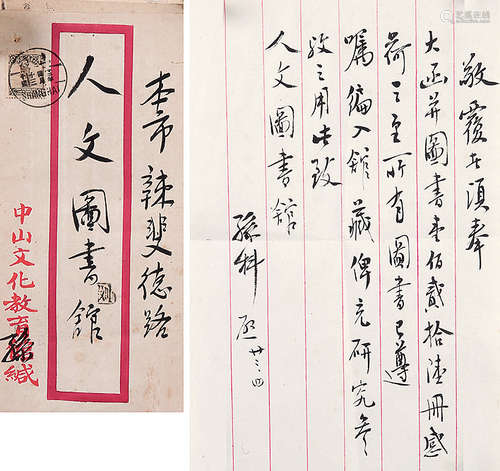 本市辣斐德路
人文圖書館
中山文化教育孫緘
SHANGHAI
敬覆者頃奉
大函并圖書壹佰貳拾陸冊感
荷之至所有圖書已遵
囑編入館藏俾充研究參
攷之用此致
人文圖書館
孫科 啟 廿三、四